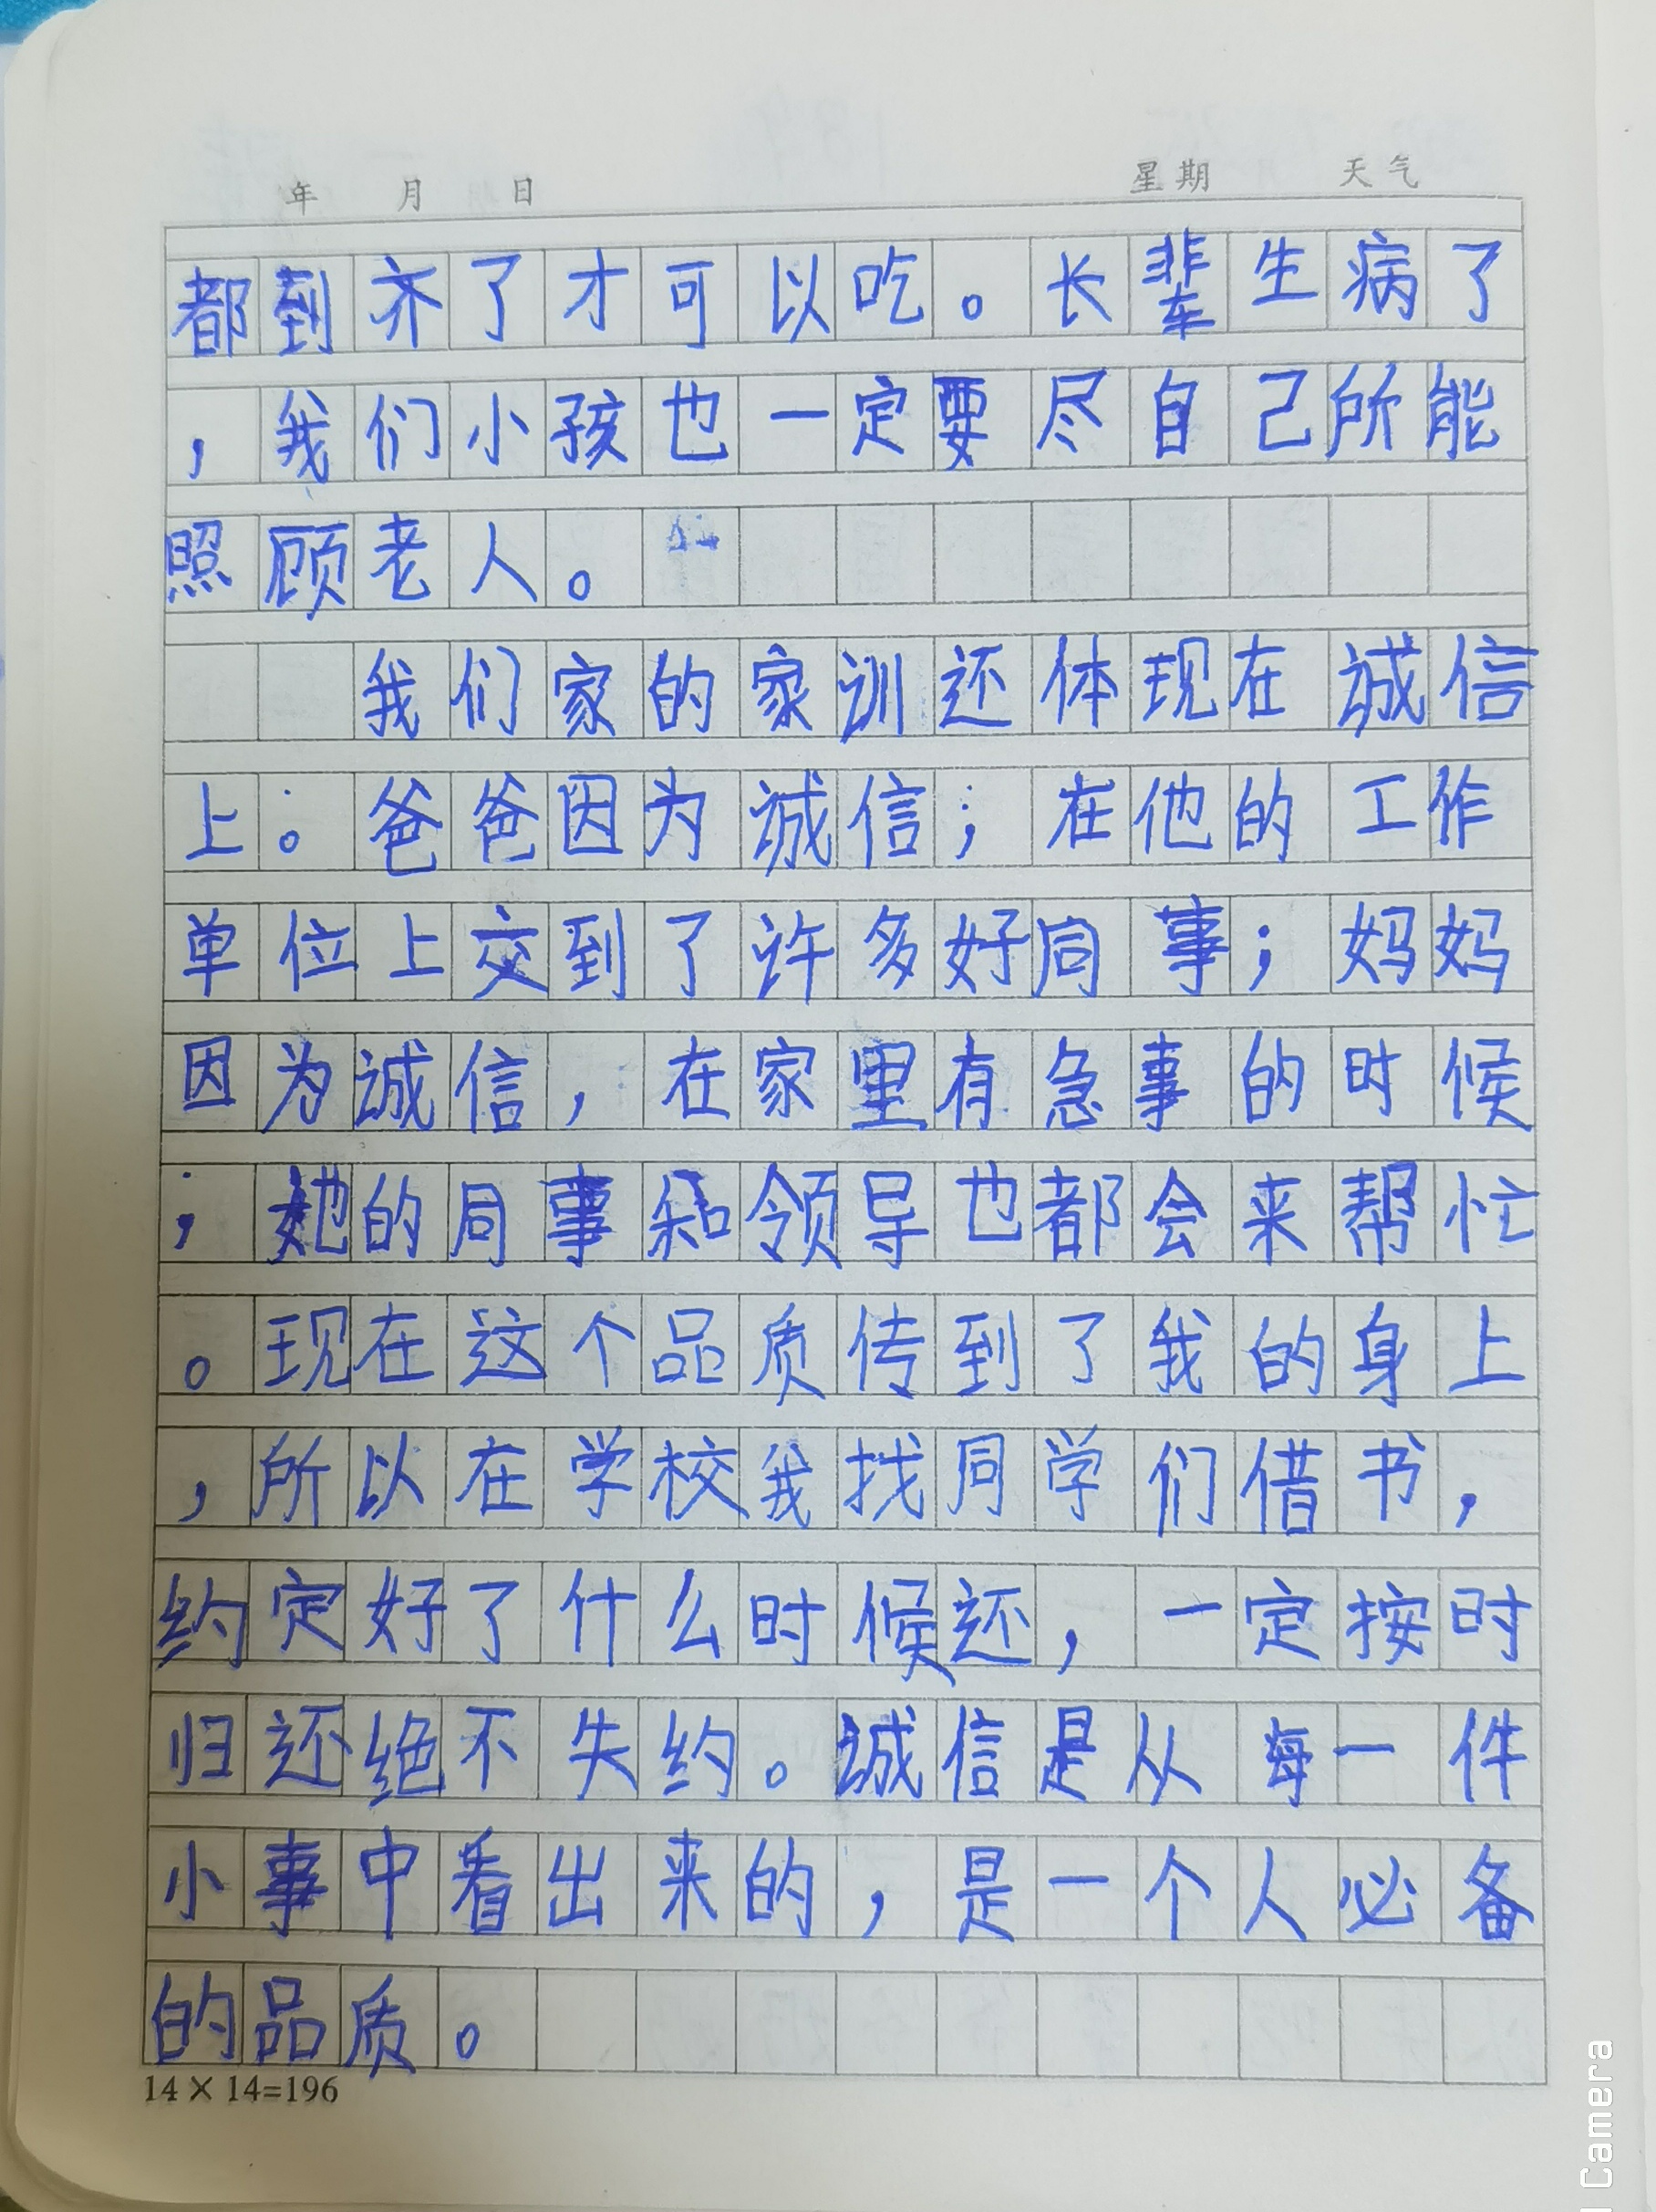 年 月 日 星期 天气
都到齐了才可以吃。长辈生病了
，我们小孩也一定要尽自己所能
照顾老人。
我们家的家训还体现在诚信
上。爸爸因为诚信；在他的工作
单位上交到了许多好同事；妈妈
因为诚信，在家里有急事的时候
；她的同事和领导也都会来帮忙
。现在这个品质传到了我的身上
，所以在学校我找同学们借书，
约定好了什么时候还，一定按时
归还绝不失约。诚信是从每一件
小事中看出来的，是一个人必备
的品质。
14×14=196
Camera